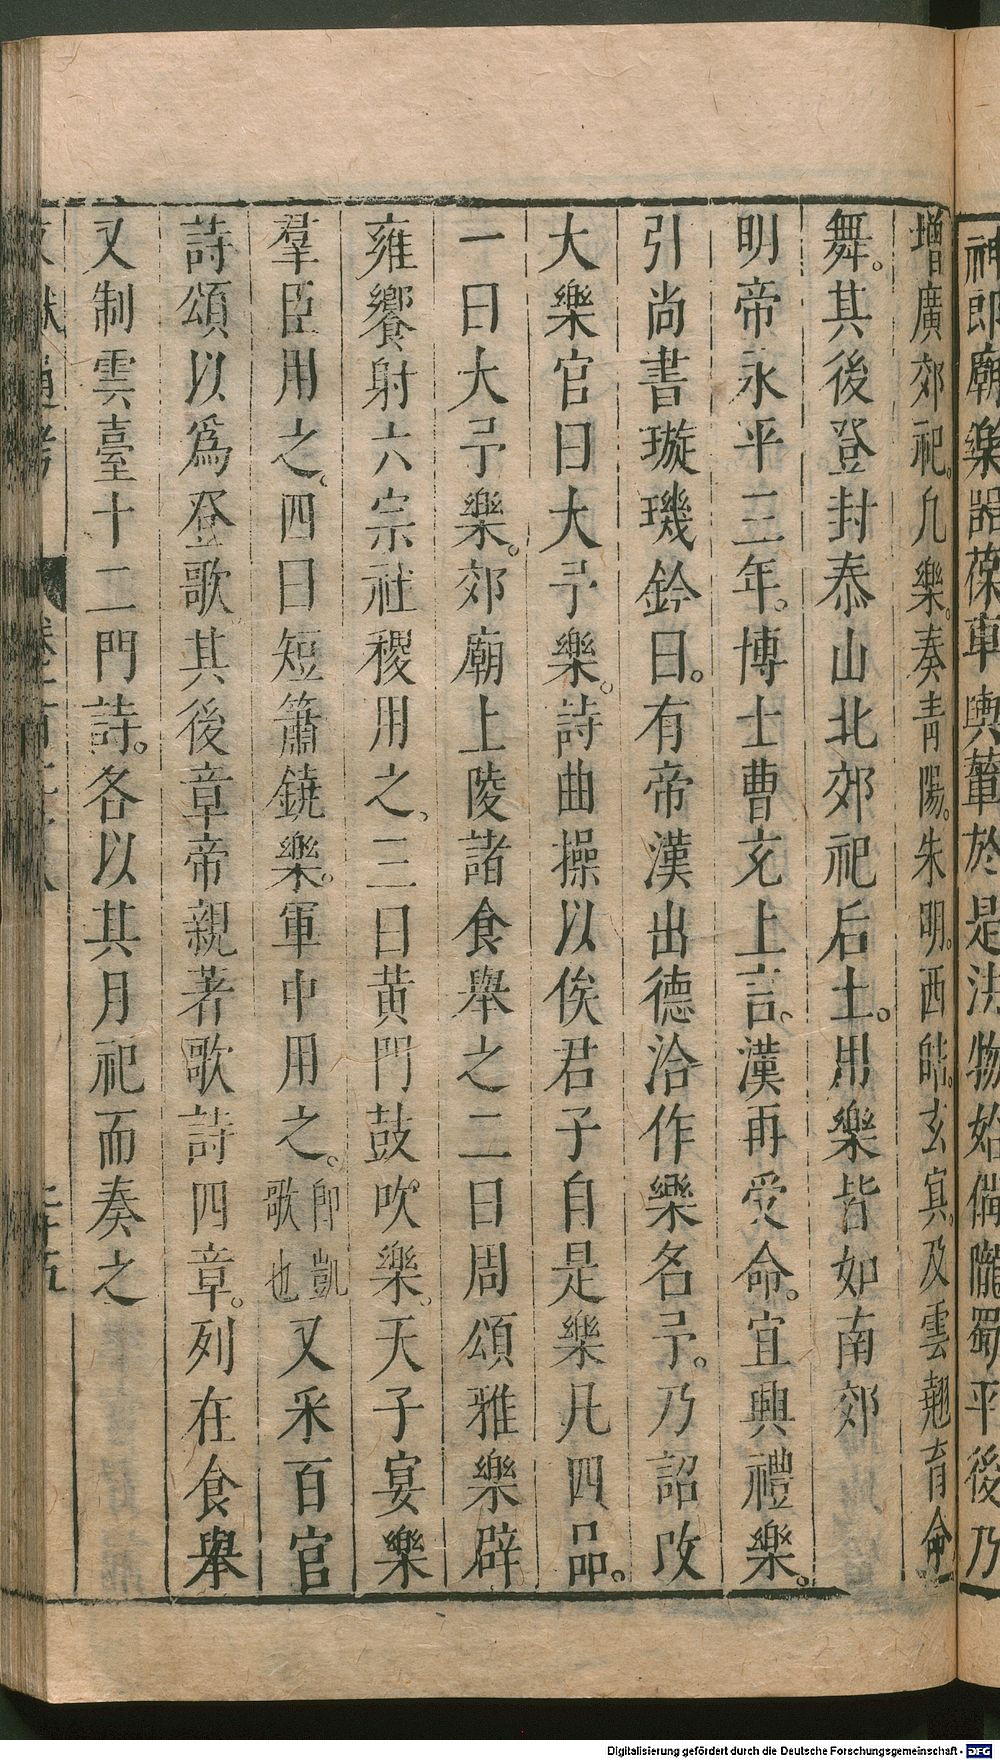 神郎廟樂器葆車輿輦於是法物始備隴蜀平後乃
增廣郊祀。凡樂。奏青陽。朱明。西皓。玄冥。及雲翹育命
舞。其後登封泰山北郊祀后土。用樂皆如南郊
明帝永平三年。博士曹充上言。漢再受命。宜興禮樂。
引尚書璇璣鈐曰。有帝漢出德洽作樂名予。乃詔改
大樂官曰大予樂。詩曲操以俟君子自是樂凡四品。
一曰大予樂。郊廟上陵諸食舉之二曰周頌雅樂辟
雍饗射六宗社稷用之。三曰黄門鼓吹樂。天子宴樂
羣臣用之。四曰短簫鐃樂。軍中用之。即凱歌也又采百官
詩頌以爲登歌其後章帝親著歌詩四章。列在食舉
又制雲臺十二門詩。各以其月祀而奏之
Digitalisierung gefördert durch die Deutsche Forschungsgemeinschaft - DFG